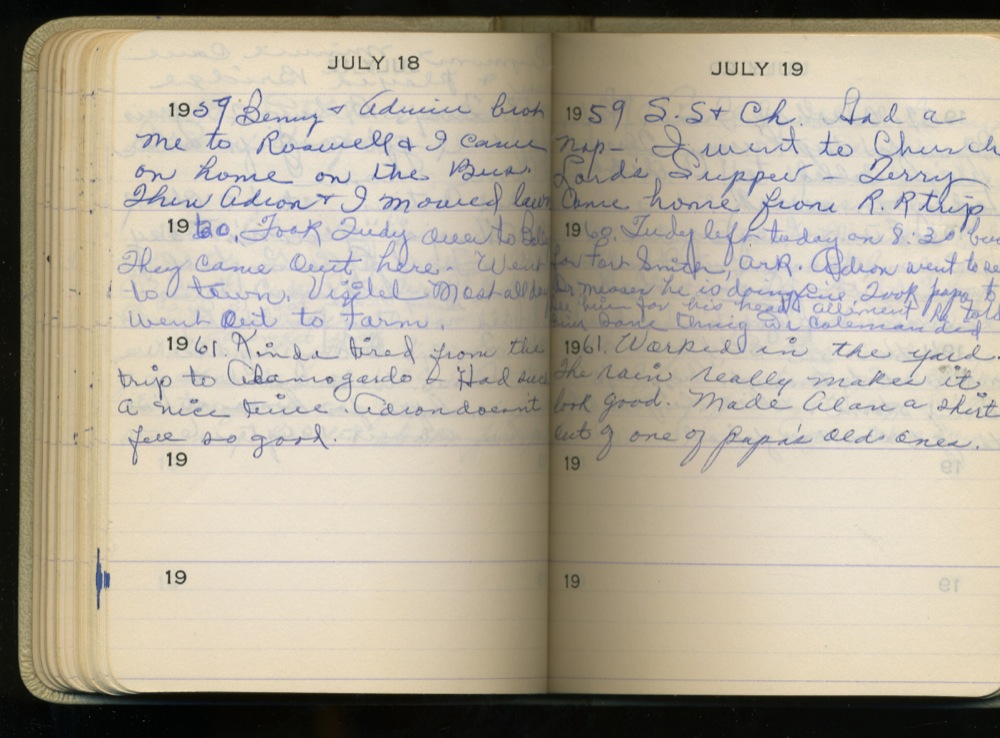 JULY 18
1959 Benny & Adrian brot
me to Roswell & I came
on home on the Bus.
Then Adron & I mowed lawn
1960. Took Judy over to
They came out here. Went
to town. Visited Most all day
Went out to Farm.
1961. Kinda tired from the
trip to Alamogardo & Had such
a nice time. Adron doesn't
feel so good.
19
19
JULY 19
1959 S.S & Ch. Had a
nap - I went to Church
Lord's Supper - Terry
Came home from R.R trip
1960. Judy left today on 8:30 bus
for Fort Smith, Ark. Adron went to see
Dr messer he is doing fine. Took papa to
see him for his head ailment he told
him same thing Dr Coleman did
1961. Worked in the yard.
The rain really makes it
look good. Made Alan a shirt
out of one of papa's old ones.
19
19